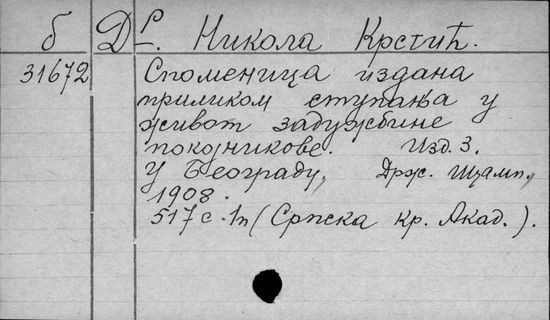 б Др. Никола Крстић.
31672 Споменица издана
приликом ступања у
живот задужбине
покојникове. Изд. 3.
У Београду, Држ. Штамп.,
1908.
517 с. 1п (Српска кр. Акад.).